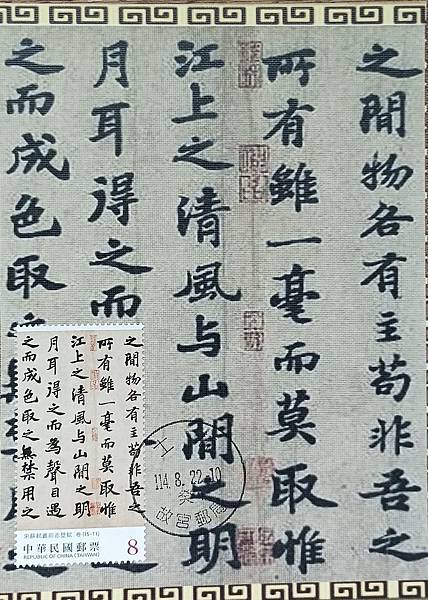 之間物各有主苟非吾之
所有雖一毫而莫取惟
江上之清風与山間之明
月耳得之而
之而成色取
之間物各有主苟非吾之
所有雖一毫而莫取惟
江上之清風与山間之明
月耳得之而為聲目遇
之而成色取之無禁用之
宋蘇軾書前赤壁賦 卷(15-11)
中華民國郵票 8
REPUBLIC OF CHINA (TAIWAN)
士
114.8.22.10
癸
故宮郵局